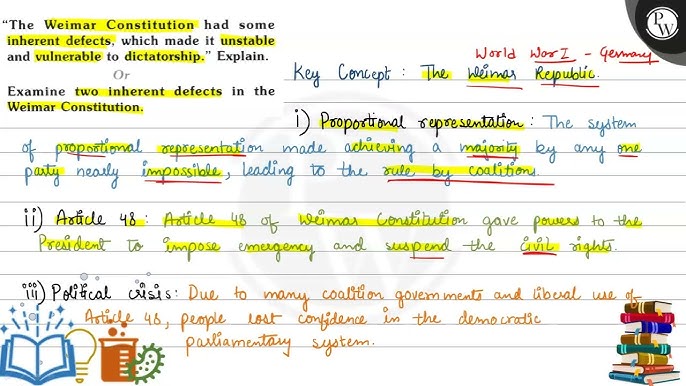 “The Weimar Constitution had some
inherent defects, which made it unstable
and vulnerable to dictatorship.” Explain.
Or
Examine two inherent defects in the
Weimar Constitution.
World War I - Germany
Key Concept : The Weimar Republic.
i) Proportional representation : The system
of proportional representation made achieving a majority by any one
party nearly impossible, leading to the rule by coalition.
ii) Article 48 : Article 48 of Weimar Constitution gave powers to the
President to impose emergency and suspend the civil rights.
iii) Political crisis: Due to many coalition governments and liberal use of
Article 48, people lost confidence in the democratic
parliamentary system.
PW